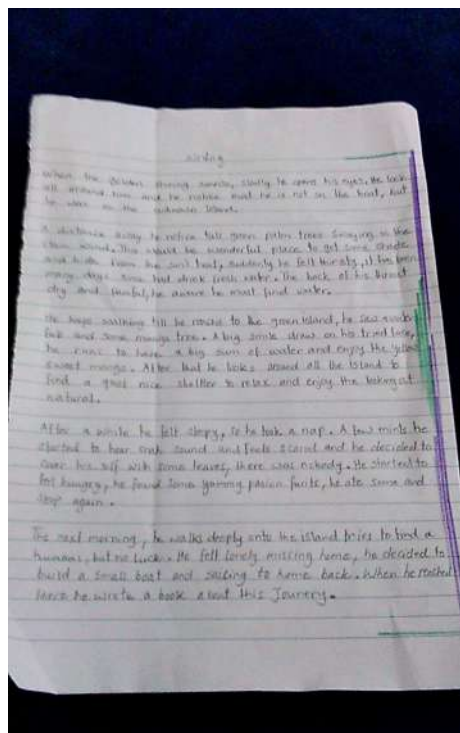 writing
When the golden shining sunrise, slowly he opens his eyes. He look
all around him and he notice that he is not on the boat, but
he were on the Island.
A distance away he notice tall green palm trees Swaying in the
clam wind. This would be wonderful place to get some shade
and hide from the sun's heat, suddenly he felt thirsty, it has been
many days since had drink fresh water. The back of his throat
dry and painful, he aware he must find water.
He keeps walking till he reache to the green island, he saw water
fall and some mango tree. A big smile draw on his tried face,
he runs to have a big sum of water and enjoy the yellow
sweet mango. After that he looks around all the Island to
find a good nice shelter to relax and enjoy the looking at
natural.
After a while he felt sleepy, so he took a nap. A few mints he
started to hear sound and feels scared and he decided to
cover his self with some leaves, there was nobody. He started to
feel hungry, he found some yammy pasion fruits, he ate some and
sleep again.
The next morning, he walks deeply onto the island tries to find a
humans, but no luck. He felt lonely missing home, he decided to
build a small boat and sailing to home back. When he reached
home he wrote a book about this Jounery.